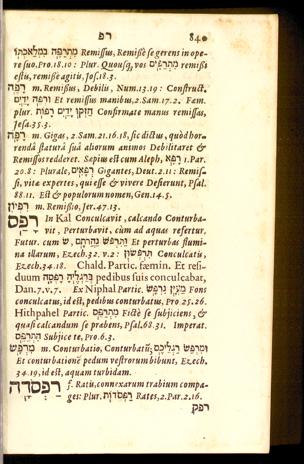 רפ 840
מִתְרַפֶּה בִמְלַאכְתּוֹ Remissus, Remissè se gerens in ope-
re suo. Pro. 18. 10: Plur. Quousq, vos מִתְרַפִּים remissi
estis, remissè agitis, Jos. 18. 3.
רָפֶה m. Remissus, Debilis, Num. 13. 19: Construct.
וּרְפֵה יָדַיִם Et remissus manibus, 2. Sam. 17. 2. Fœm.
plur. חַזְּקוּ יָדַיִם רָפוֹת Confirmate manus remissas,
Jesa. 35. 3.
רָפָה m. Gigas, 2. Sam. 21. 16, 18, sic dictus, quòd hor-
rendâ staturâ suâ aliorum animos Debilitaret &
Remissos redderet. Sæpius est cum Aleph, רָפָא 1. Par.
20. 8: Plurale, רְפָאִים Gigantes, Deut. 2. 11: Remis-
si, vitæ expertes, qui esse & vivere Desierunt, Psal.
88. 11. Est & populorum nomen, Gen. 14. 5.
רִפְיוֹן m. Remissio, Jer. 47. 13.
רָפַס In Kal Conculcavit, calcando Conturba-
vit, Perturbavit, cùm ad aquas refertur,
Futur. cum שׂ, וַתִּרְפֹּשׂ נַהֲרוֹתָם Et perturbas flumi-
na illarum, Ezech. 32. v. 2: תִּרְפֹּשׂוּן Conculcatis,
Ezech. 34. 18. Chald. Partic. fæmin. Et resi-
duum רָפְסָה בְּרַגְלַיהּ pedibus suis conculcabat,
Dan. 7. v. 7. Ex Niphal Partic. מַעְיָן נִרְפָּשׂ Fons
conculcatus, id est, pedibus conturbatus, Pro. 25. 26.
Hithpahel Partic. מִתְרַפֵּס Fictè se subjiciens, &
quasi calcandum se præbens, Psal. 68. 31. Imperat.
הִתְרַפֵּס Subjice te, Pro. 6. 3.
מִרְפָּשׂ m. Conturbatio, Conturbatũ; וּמִרְפַּשׂ רַגְלֵיכֶם
Et conturbationẽ pedum vestrorum bibunt, Ezech.
34. 19, id est, aquam turbidam.
רַפְסֹדָה f. Ratis, connexarum trabium compa-
ges: Plur. רַפְסֹדוֹת Rates, 2. Par. 2. 16.
רפק